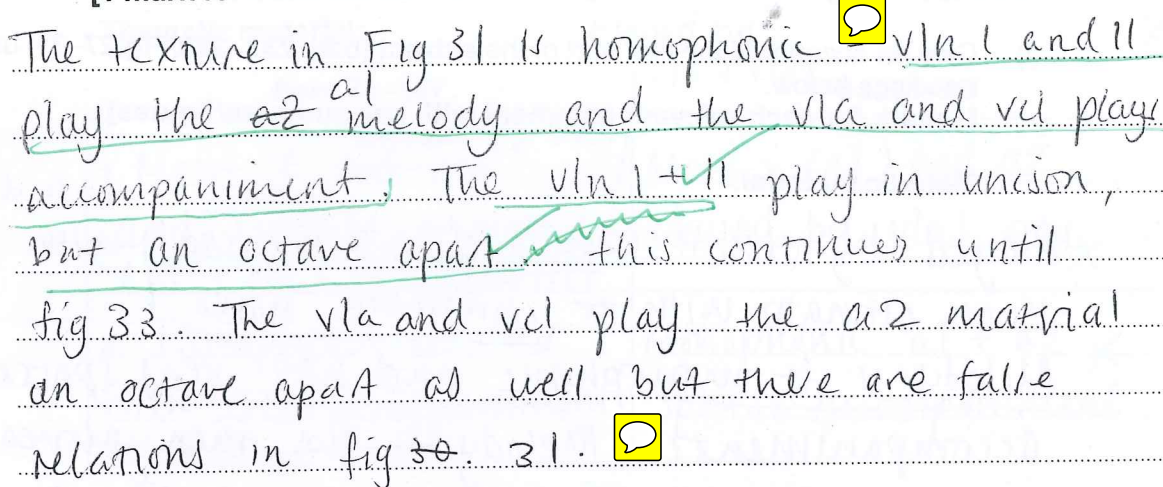 The texture in Fig 31 is homophonic - vln I and II
play the a2 a1 melody and the vla and vcl plays
accompaniment. The vln I + II play in unison,
but an octave apart. this continues until
fig 33. The vla and vcl play the a2 matrial
an octave apart as well but there are false
relations in fig 30. 31.